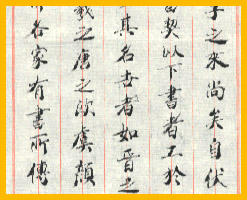 之來尚矣自伏
契以下書者工於
其名古者如晉之
羲之唐之歐虞顏
各家有書所傳